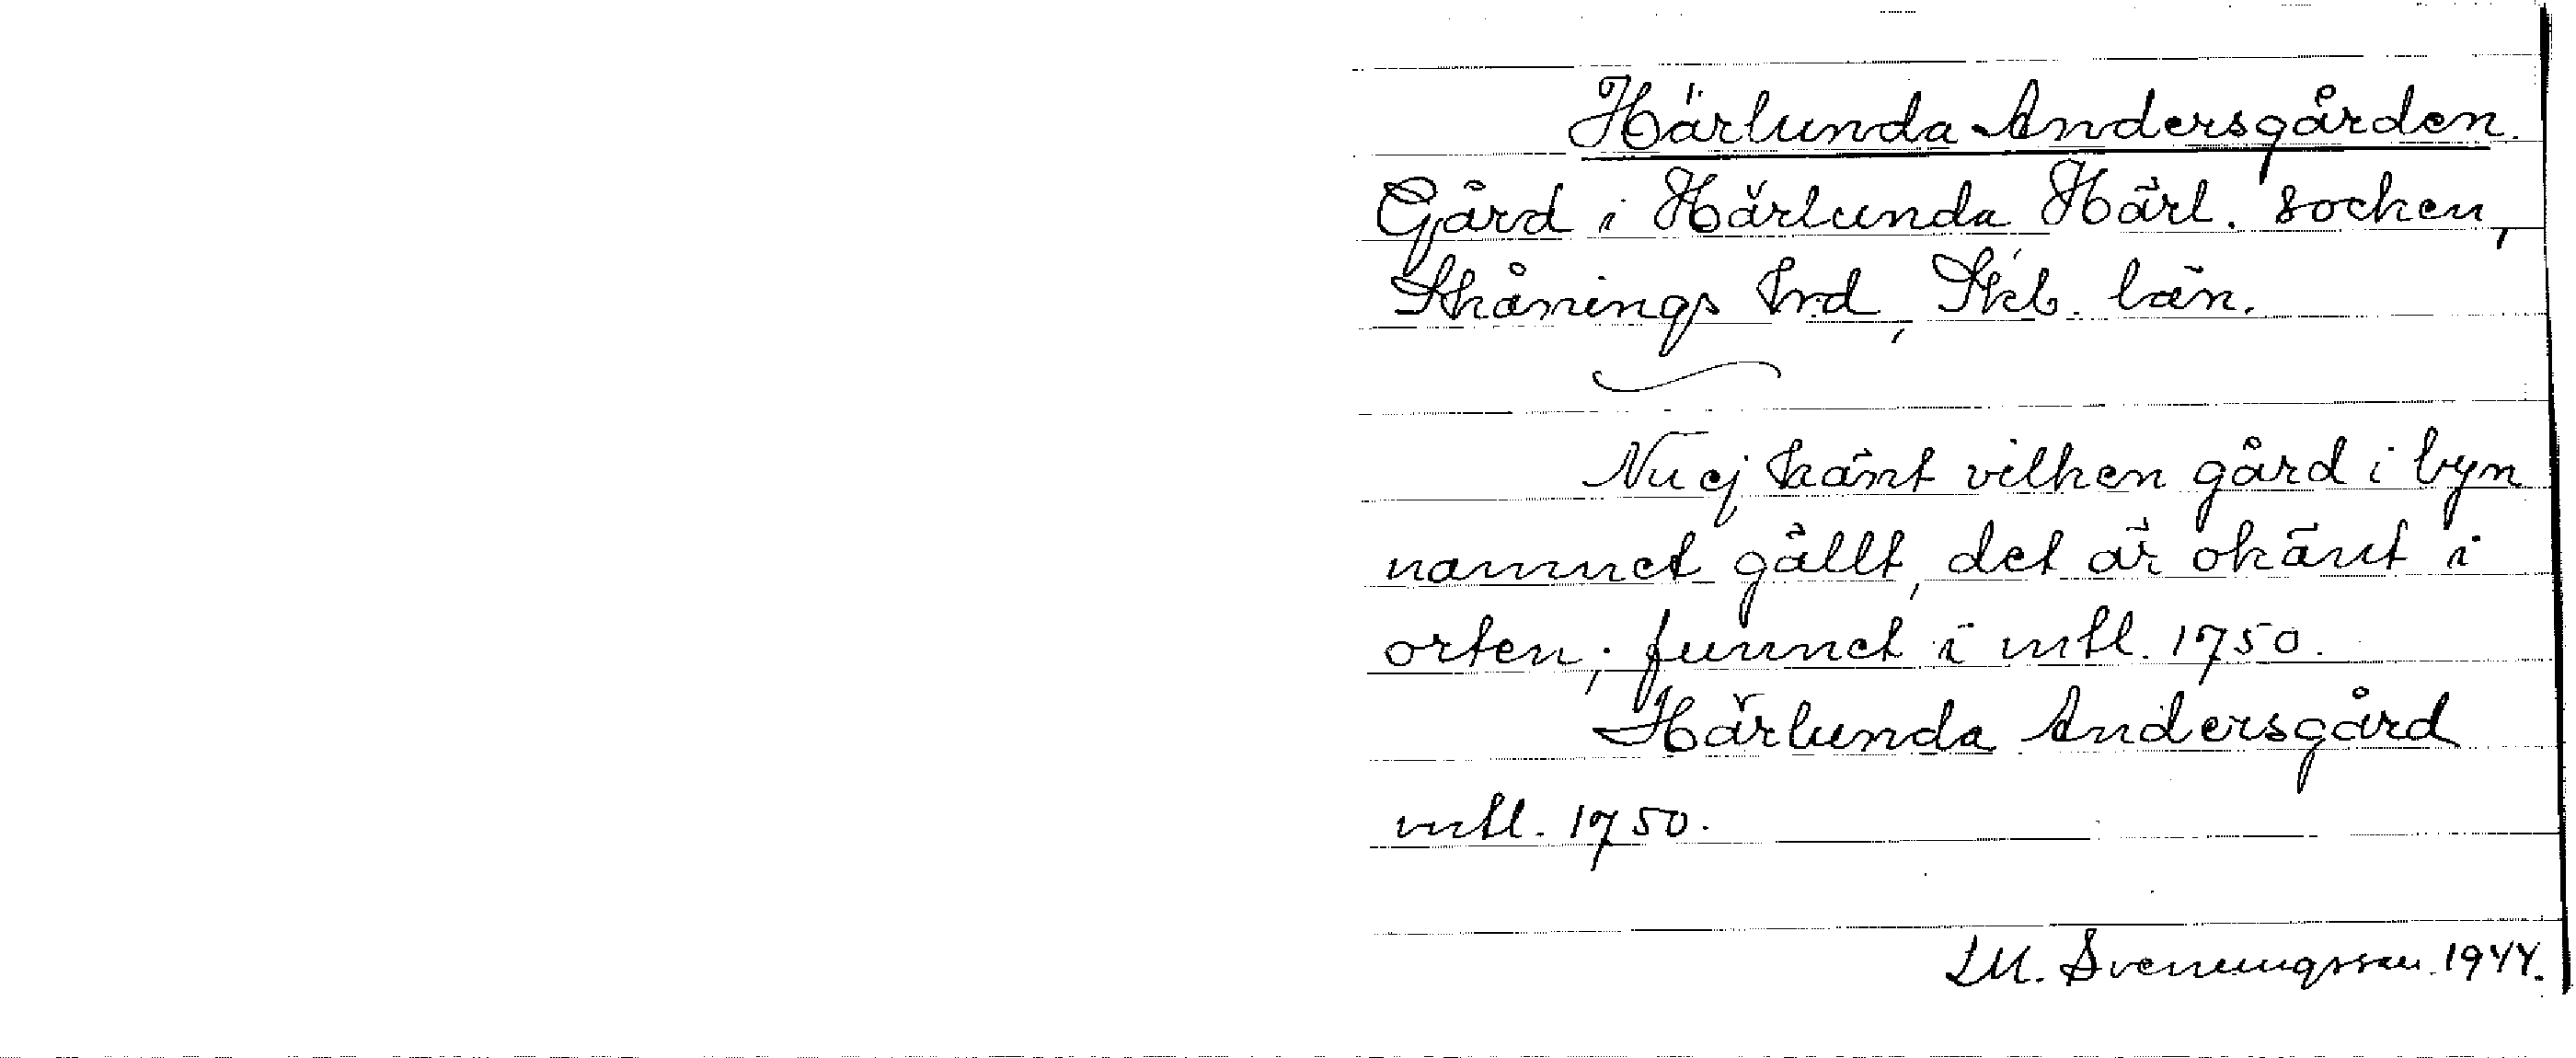 Härlunda Andersgården.
Gård i Härlunda Härl. socken,
Skånings hrd, Skb. län.
Nu ej känt vilken gård i byn
namnet gällt, det är okänt i
orten; funnet i mtl. 1750.
Härlunda Andersgård
mtl. 1750.
I.M. Svenungsson 1944.